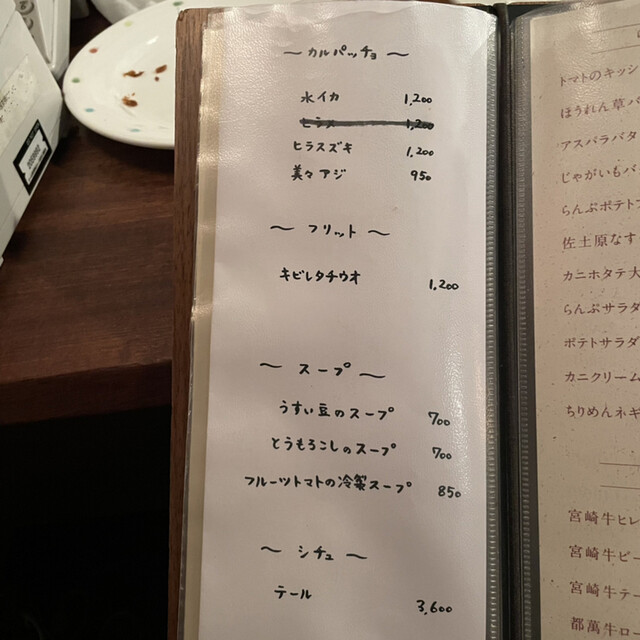 ～ カルパッチョ ～
水イカ 1,200
ヒラス 1,200
ヒラスズキ 1,200
美々アジ 950
～ フリット ～
キビレタチウオ 1,200
～ スープ ～
うすい豆のスープ 700
とうもろこしのスープ 700
フルーツトマトの冷製スープ 850
～ シチュ ～
テール 3,600
トマトのキッシ
ほうれん草
アスパラバタ
じゃがいもバ
らんぷポテト
佐土原なす
カニホタテ大
らんぷサラダ
ポテトサラダ
カニクリーム
ちりめんネギ
宮崎牛ヒレ
宮崎牛ビー
宮崎牛テー
都萬牛ロー